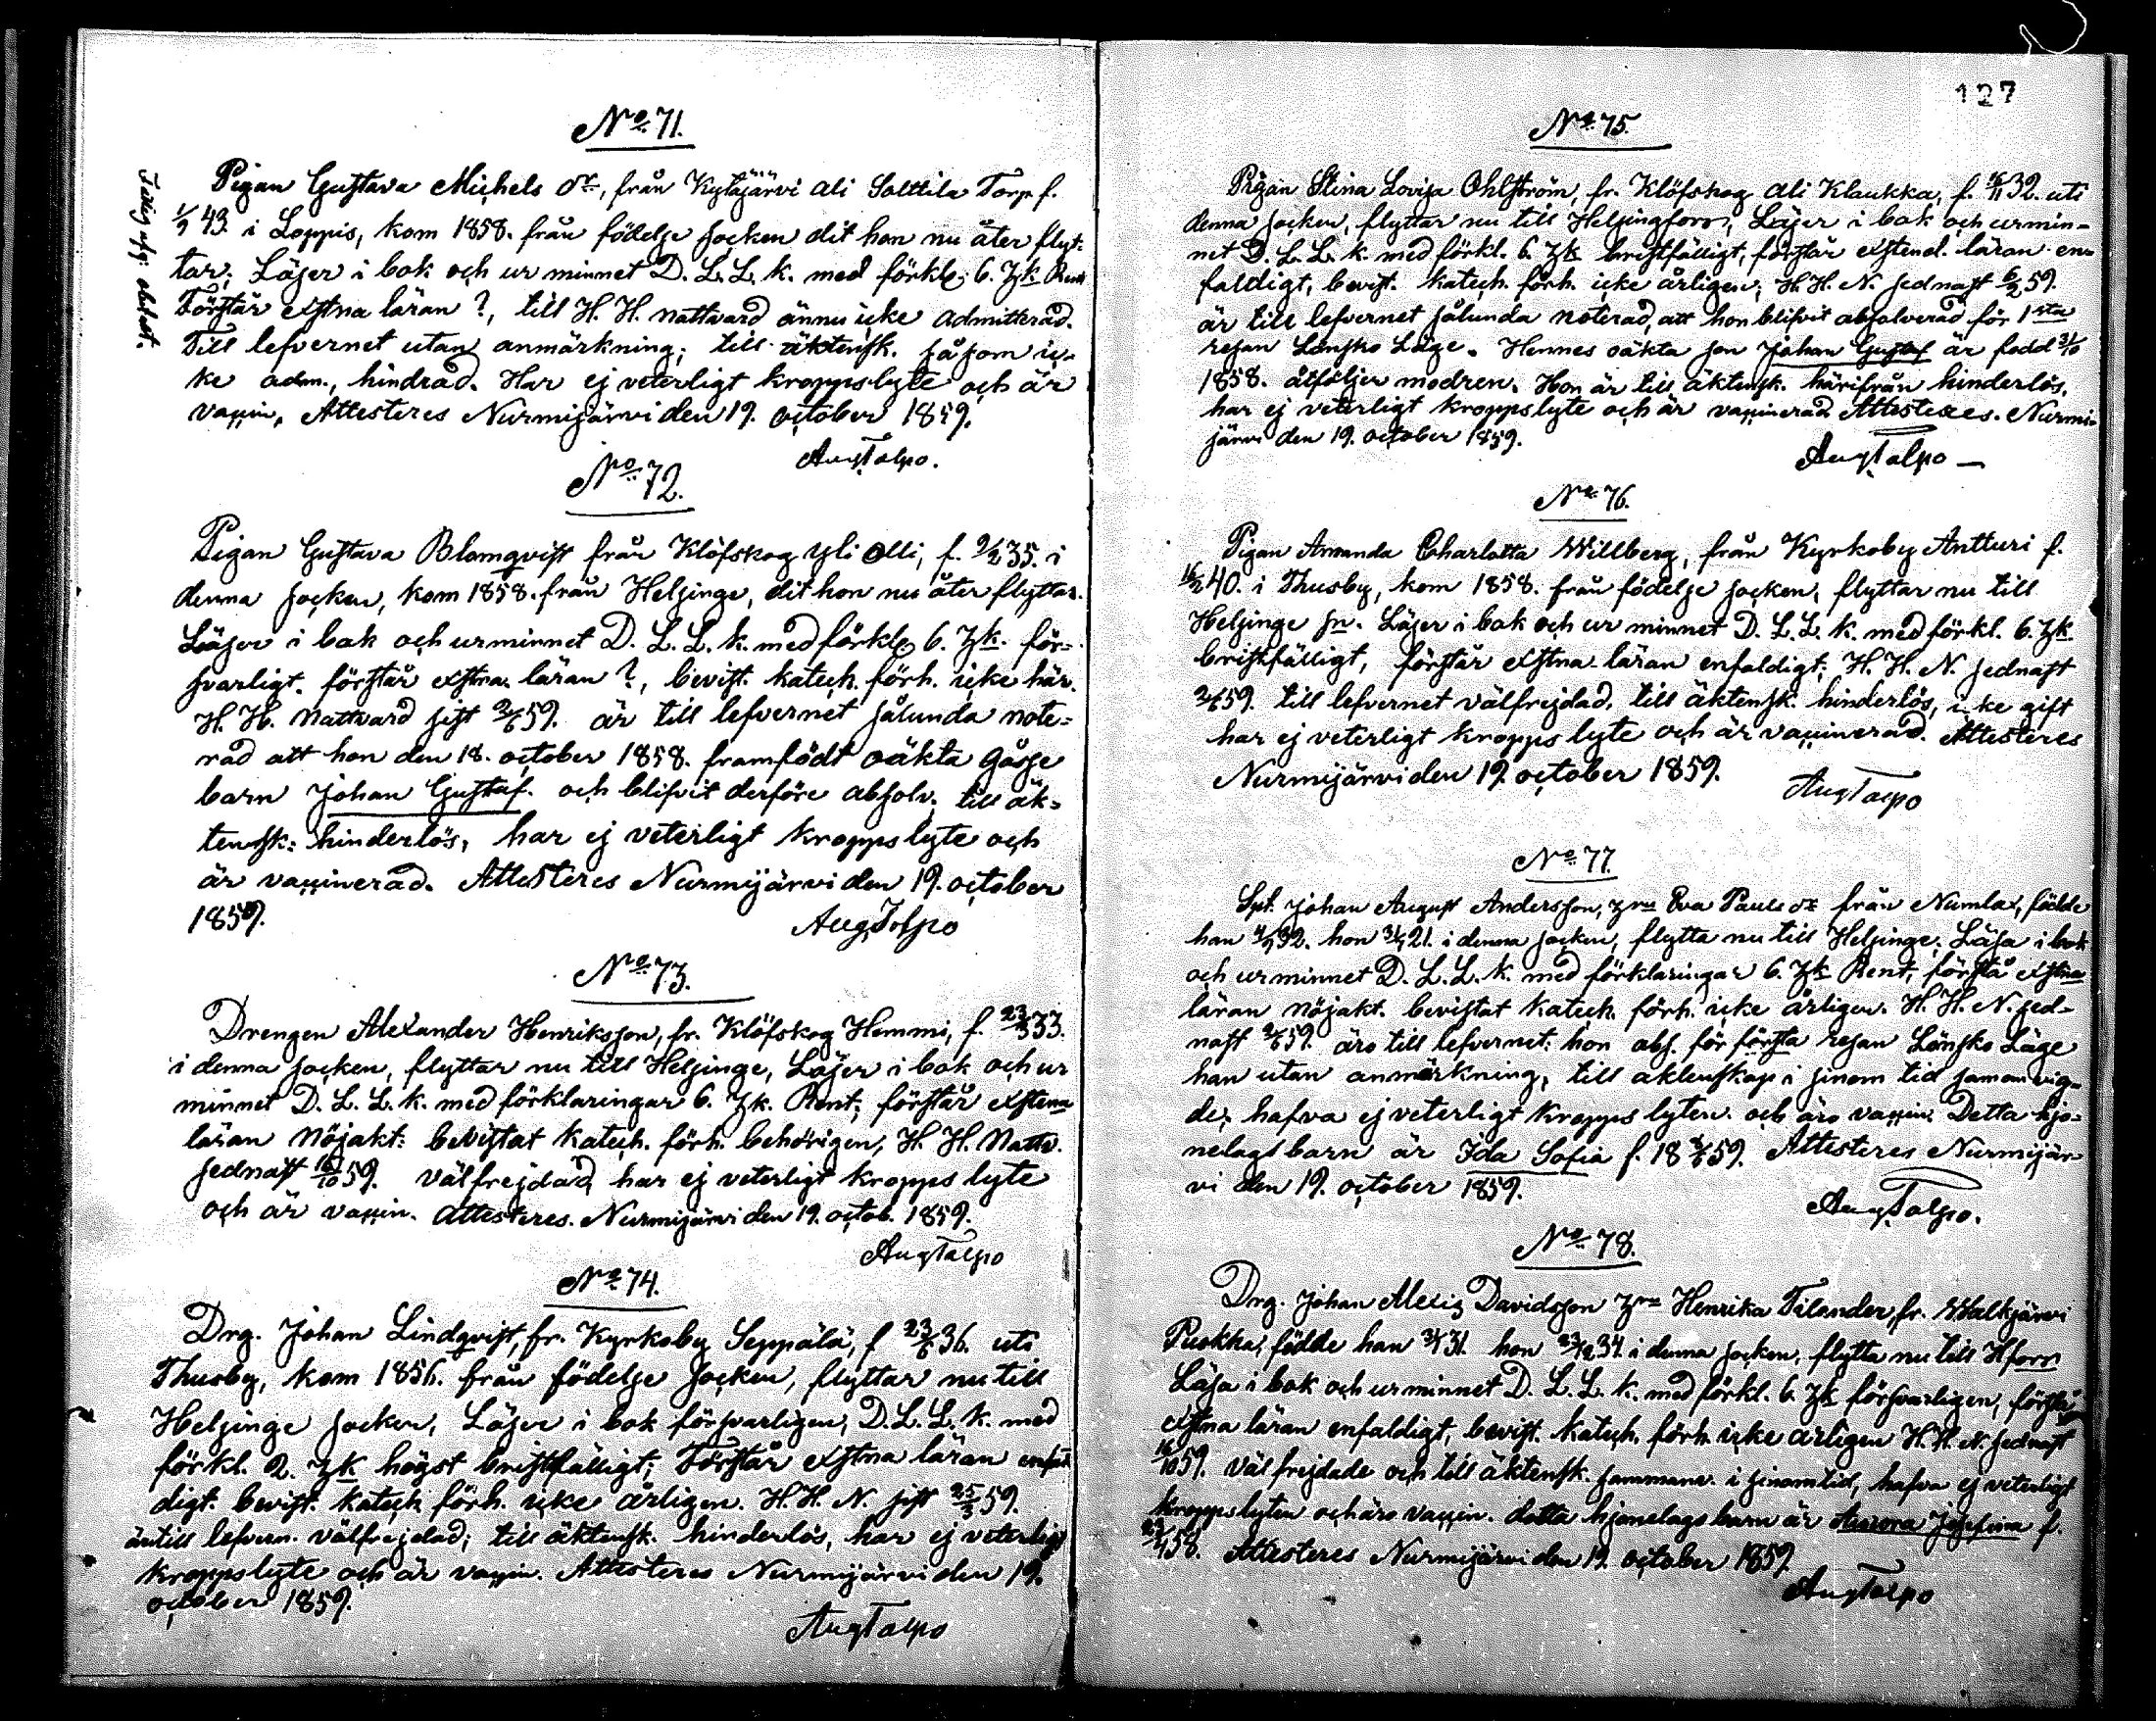 No 71.
Pigan Gustava Michels dr, från Kytäjärvi Ali Solttila Torp f.
1/1 43. i Loppis, kom 1858. från födelse socken dit hon nu åter flyt-
tar; Läser i bok och ur minnet D. L. L. k. med förkl. 6. Hk
Förstår Xstna läran ?, till H. H. nattvard ännu icke admitterad.
Till lefvernet utan anmärkning; till äktensk. såsom ic-
ke adm., hindrad. Har ej veterligt kroppslyte och är
vaccin. Attesteres Nurmijärvi den 19. october 1859.
Aug Talpo.
No 72.
Pigan Gustava Blomqvist från Klöfskog Yli Olli, f. 9/2 35. i
denna socken, kom 1858. från Helsinge, dit hon nu åter flyttar.
Läser i bok och ur minnet D. L. L. k. med förkl. 6. Hk. för-
svarligt. förstår Xstna läran ?, bevist. katech. förh. icke här.
H. H. Nattvard sist 59. är till lefvernet sålunda note-
rad att hon den 18. october 1858. framfödt oäkta gosse
barn Johan Gustaf. och blifvit derföre absolv. till äk-
tensk: hinderlös, har ej veterligt kroppslyte och
är vaccinerad. Attesteres Nurmijärvi den 19. october
1859.
Aug Talpo
No 73.
Drengen Alexander Henriksson, fr. Klöfskog Hemmi, f. 33.
i denna socken, flyttar nu till Helsinge, Läser i bok och ur
minnet D. L. L. k. med förklaringar 6. Hk. Rent; förstår Xstna
läran Nöjakt: bevistat katech. förh. behörigen, H. H. Nattv.
sednast 16/10 59. välfrejdad, har ej veterligt kroppslyte
och är vaccin. Attesteres. Nurmijärvi den 19. octob. 1859.
Aug Talpo
No 74.
Drg. Johan Lindqvist, fr. Kyrkoby Seppälä, f 23/6 36. uti
Thusby, kom 1856. från födelse socken, flyttar nu till
Helsinge socken, Läser i bok försvarligen, D. L. L. k. med
förkl. 2. Hk högst bristfälligt; Förstår Xstna läran enfal-
digt. bevist. katech förh. icke årligen. H. H. N. sist 25/3 59.
är till lefvern. välfrejdad; till äktensk. hinderlös, har ej veterligt
kroppslyte och är vaccin. Attesteres Nurmijärvi den 19.
october 1859.
Aug Talpo
127
No 75.
Pigan Stina Lovisa Ohlström, fr. Klöfskog Ali Klaukka, f. 32. uti
denna socken, flyttar nu till Helsingfors, Läser i bok och ur min-
net D. L. L. k. med förkl. 6. Hk bristfälligt, förstår Xstend. läran en-
faldigt, bevist. katech. förh. icke årligen; H. H. N. sednast 6/2 59.
är till lefvernet sålunda noterad, att hon blifvit absolverad för 1sta
resan Lönsko Läge. Hennes oäkta son Johan Gustaf är född
1858. åtföljer modren. Hon är till äktensk. härifrån hinderlös,
har ej veterligt kroppslyte och är vaccinerad. Attesteres. Nurmi-
järvi den 19. october 1859.
Aug Talpo
No 76.
Pigan Amanda Charlotta Willberg, från Kyrkoby Antturi f.
16/2 40. i Thusby, kom 1858. från födelse socken, flyttar nu till
Helsinge sn. Läser i bok och ur minnet D. L. L. k. med förkl. 6. Hk.
bristfälligt, förstår Xstna läran enfaldigt; H. H. N. sednast
59. till lefvernet välfrejdad, till äktensk. hinderlös, icke gift
har ej veterligt kroppslyte och är vaccinerad. Attesteres
Nurmijärvi den 19. october 1859.
Aug Talpo
No 77.
Spt. Johan August Andersson, hru Eva Pauls dr från Numlax, födde
han 4/9 32. hon 21. i denna socken, flytta nu till Helsinge. Läsa i bok
och ur minnet D. L. L. k. med förklaringar 6. Hk Rent, förstå Xstna
läran nöjakt. bevistat Katech. förh. icke årligen. H. H. N. sed-
nast 59. äro till lefvernet: hon abs. för första resan Lönsko Läge
han utan anmärkning, till äktenskap i sinom tid samman vig-
de; hafva ej veterligt kroppslyten och äro vaccin. Detta hjo-
nelags barn är Ida Sofia f. 18 59. Attesteres Nurmijär-
vi den 19. october 1859.
Aug Talpo.
No 78.
Drg. Johan Alexis Davidsson hru Henrika Tilander, fr. Walkjärvi
Puokka, födde han 31. hon 34. i denna socken, flytta nu till Hfors
Läsa i bok och ur minnet D. L. L. k. med förkl. 6. Hk försvarligen, förstå
Xstna läran enfaldigt, bevist. katech. förh. icke årligen H. H. N. sednast
16/10 59. välfrejdade och till äktensk. sammanv. i sinom tid, hafva ej veterligt
kroppslyten och äro vaccin. detta hjonelags barn är Aurora Josefina f.
58. Attesteres Nurmijärvi den 19. october 1859.
Aug Talpo